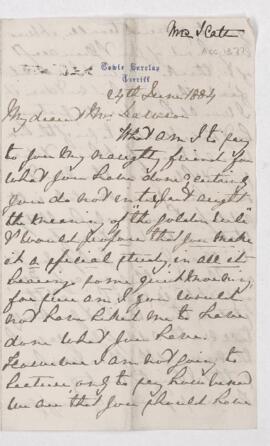 Mrs Scott
Acc.
Towie Barclay
Turriff
24th June 1884
My dear Mrs Dawson
What am I to say
to you My naughty friend for
what you have done certainly
you do not interpret aright
the meaning of the golden rule
I would propose that you make
it a special study in all its
bearing some quiet morning
for sure am I you would
not have liked me to have
done what you have.
However I am not going to
lecture only to say how vexed
we are that you should have